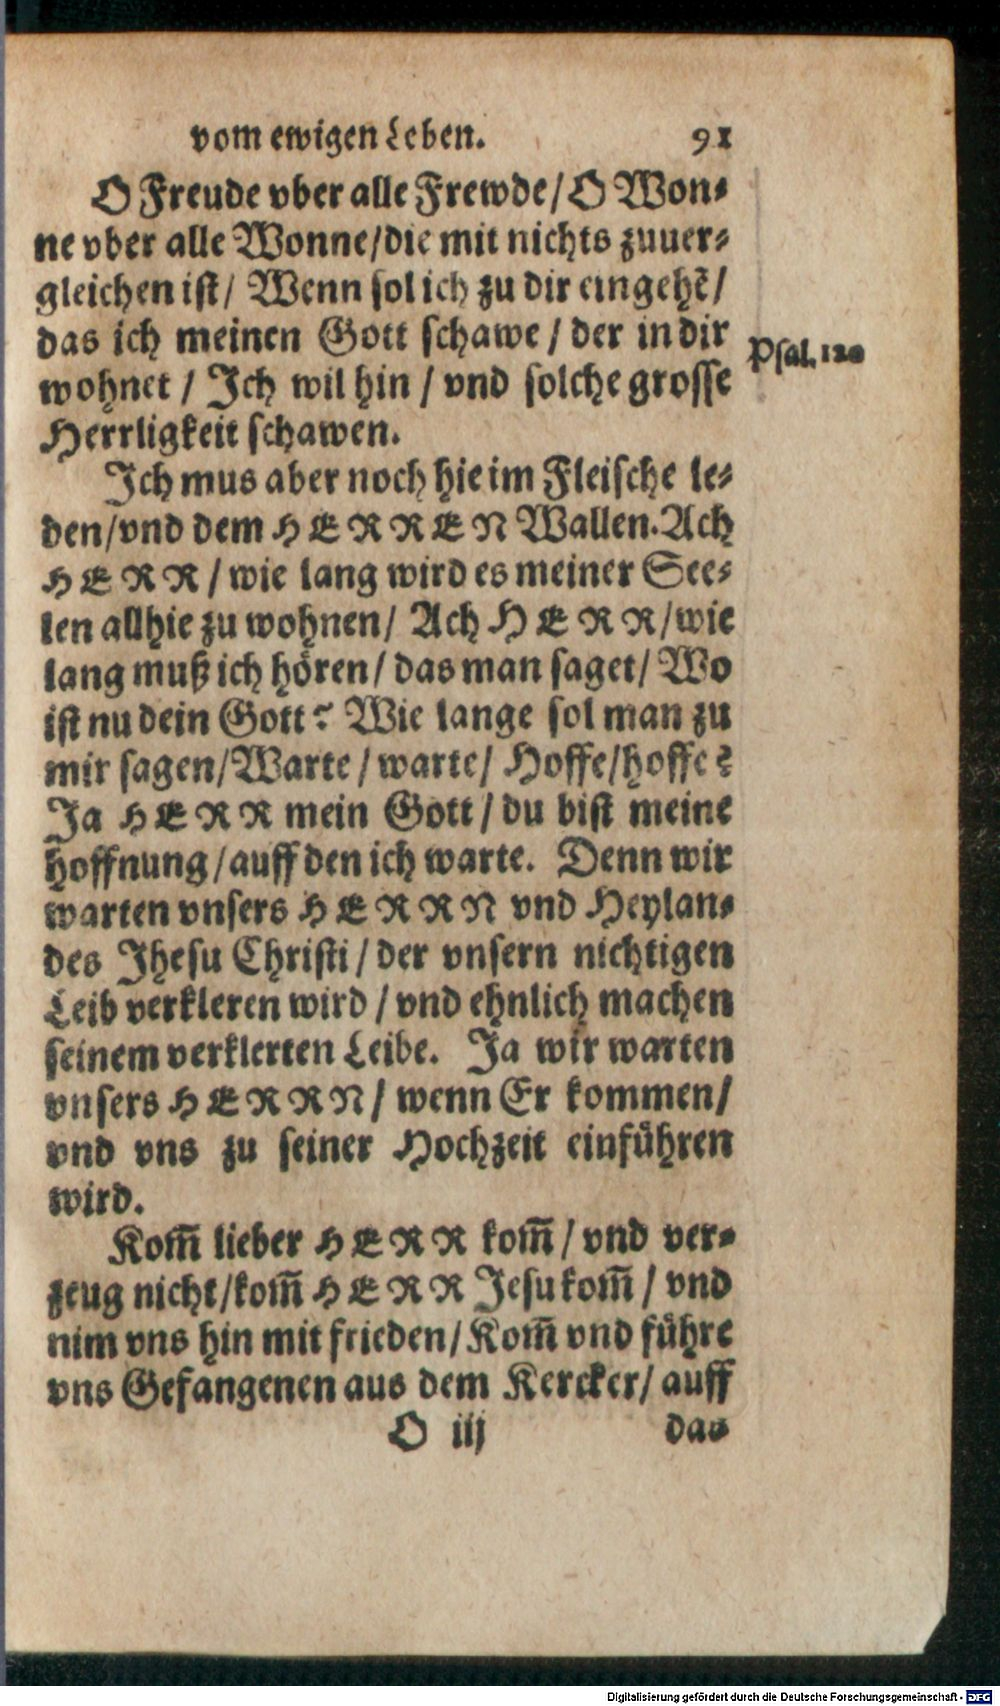 vom ewigen Leben. 91
O Freude vber alle Frewde/ O Won-
ne vber alle Wonne/die mit nichts zuuer-
gleichen ist/ Wenn sol ich zu dir eingehẽ/
das ich meinen Gott schawe / der in dir
Psal. 120
wohnet / Ich wil hin / vnd solche grosse
Herrligkeit schawen.
Ich mus aber noch hie im Fleische le-
den/vnd dem HERREN Wallen. Ach
HERR / wie lang wird es meiner See-
len allhie zu wohnen/ Ach HERR/wie
lang muß ich hören/ das man saget/ Wo
ist nu dein Gott? Wie lange sol man zu
mir sagen/Warte / warte/ Hoffe/hoffe?
Ja HERR mein Gott / du bist meine
hoffnung/auff den ich warte. Denn wir
warten vnsers HERRN vnd Heylan-
des Jhesu Christi / der vnsern nichtigen
Leib verkleren wird / vnd ehnlich machen
seinem verklerten Leibe. Ja wir warten
vnsers HERRN / wenn Er kommen/
vnd vns zu seiner Hochzeit einführen
wird.
Kom̃ lieber HERR kom̃ / vnd ver-
zeug nicht/kom̃ HERR Jesu kom̃ / vnd
nim vns hin mit frieden/ Kom̃ vnd führe
vns Gefangenen aus dem Kercker/ auff
O iij das
Digitalisierung gefördert durch die Deutsche Forschungsgemeinschaft - DFG